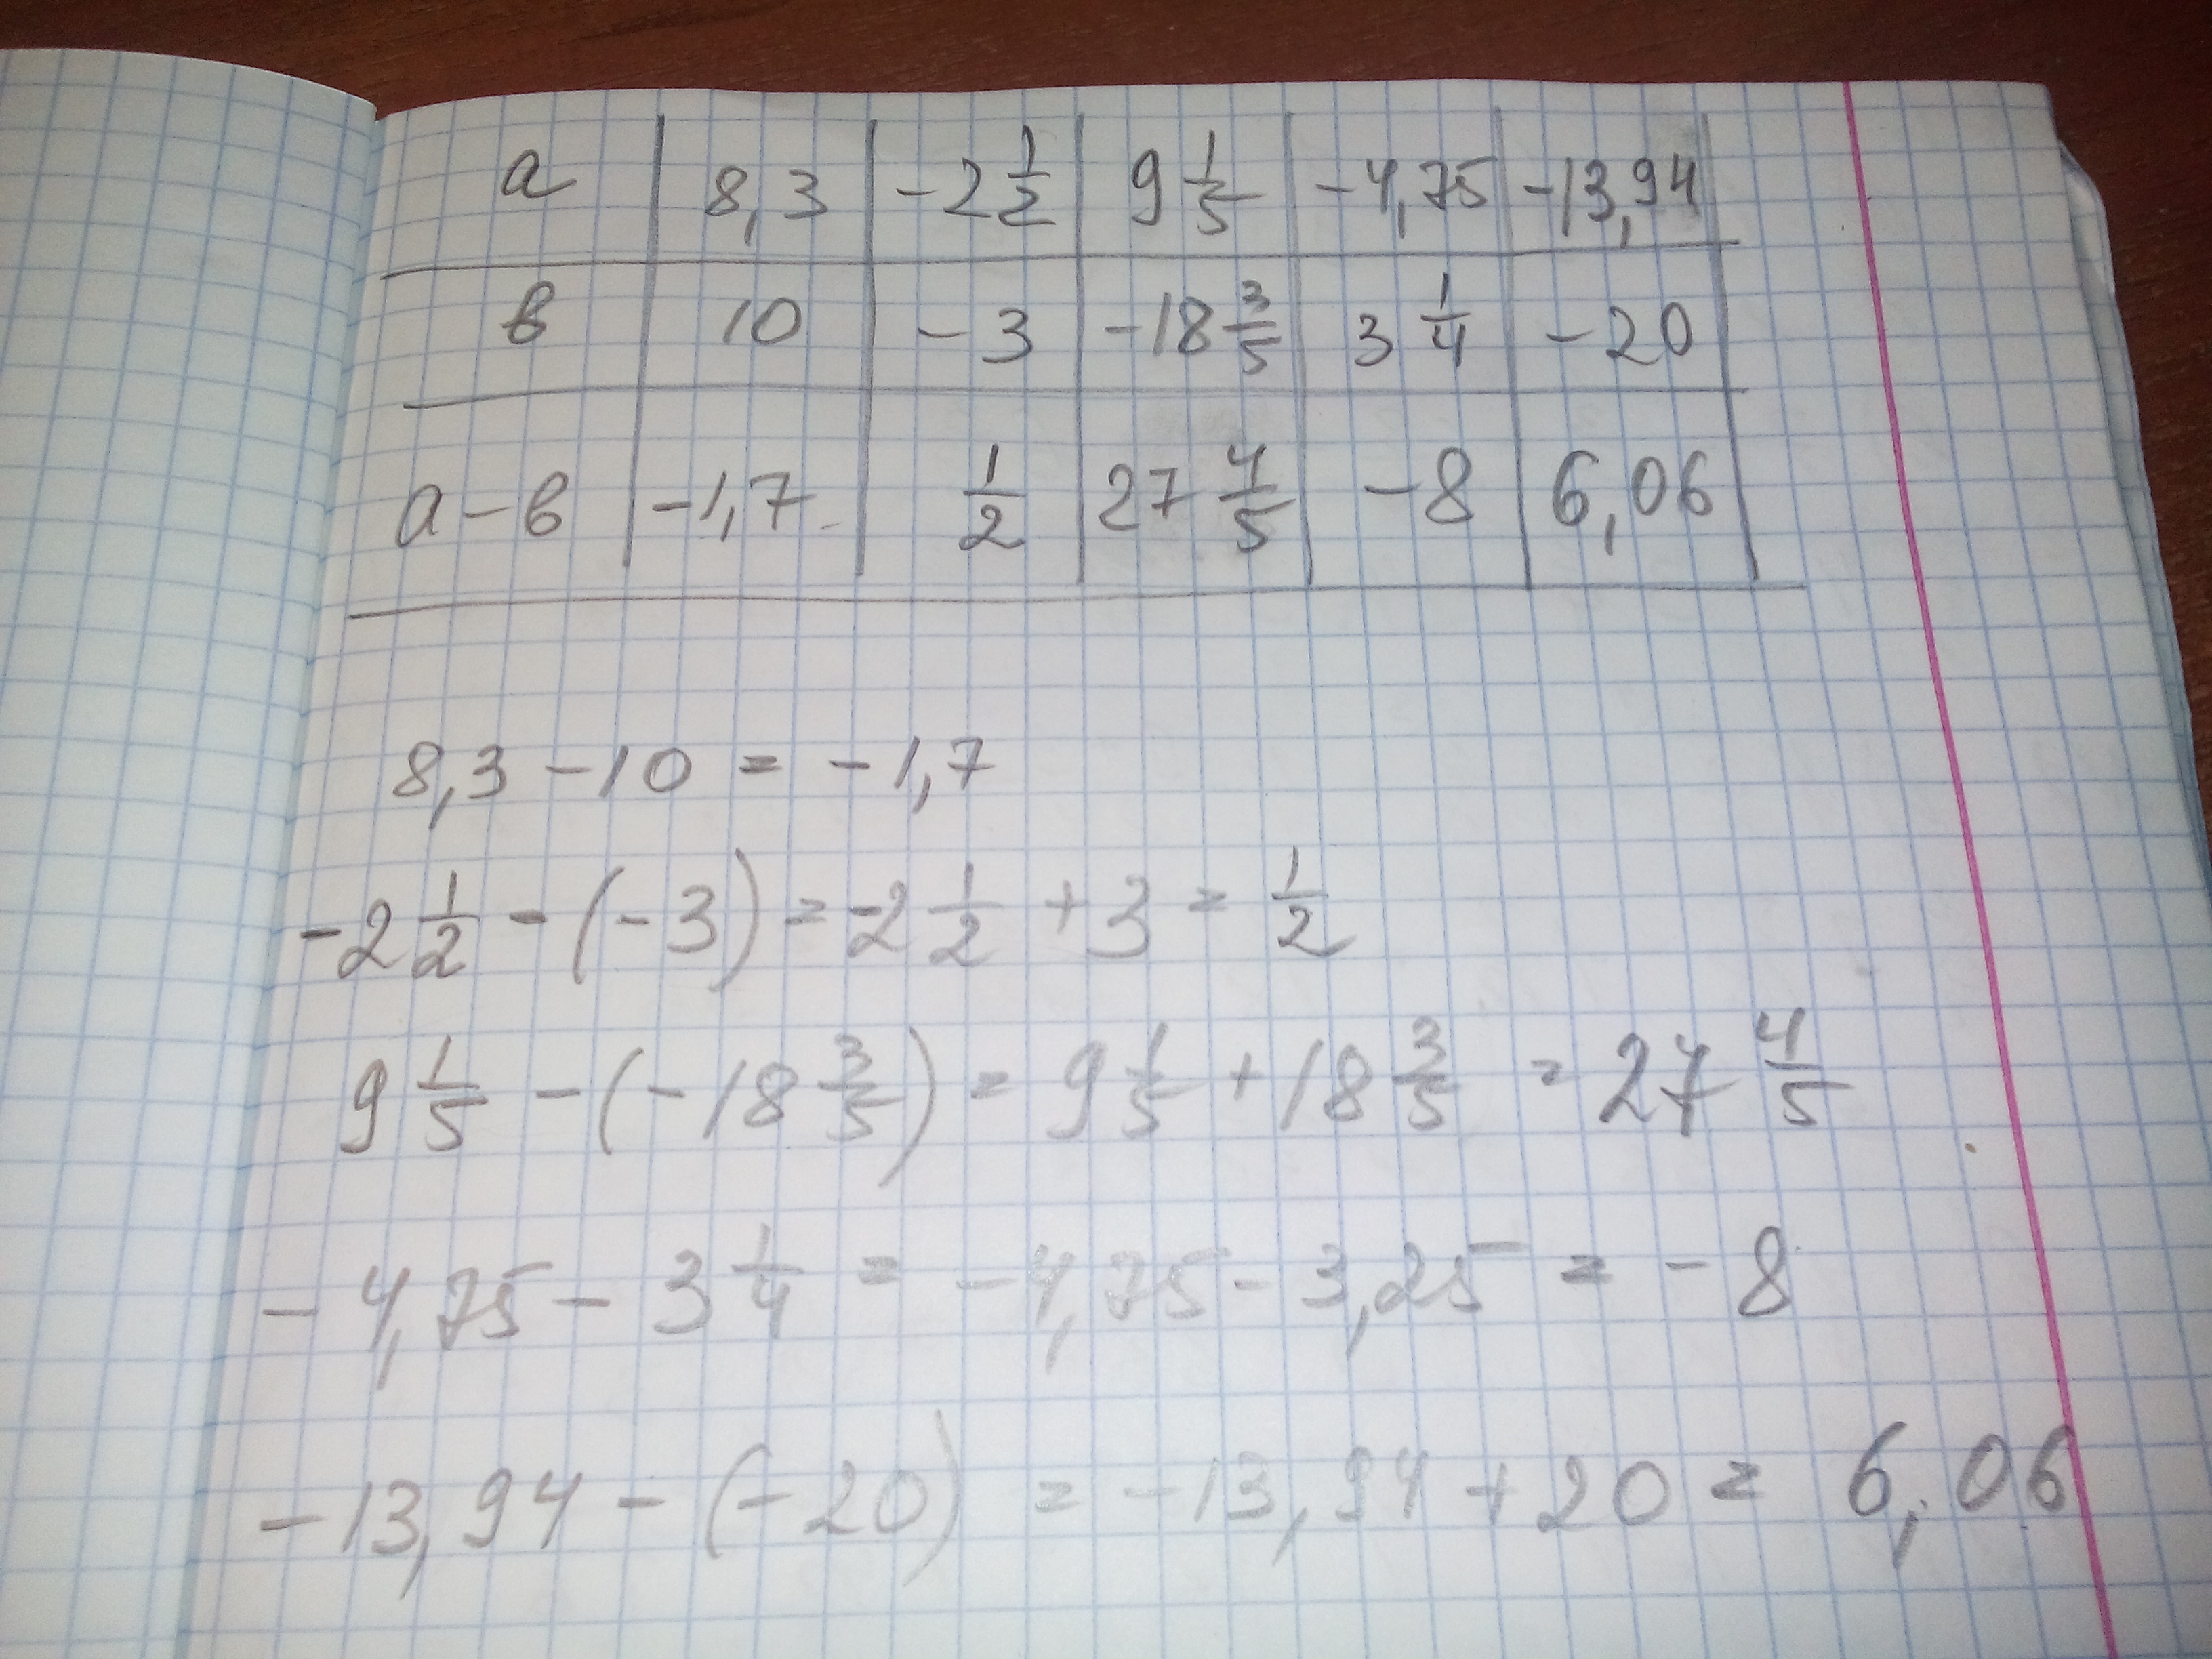 а 8,3 -2 1/2 9 1/5 -4,75 -13,94
в 10 -3 -18 3/5 3 1/4 -20
а-в -1,7 1/2 27 4/5 -8 6,06
8,3 - 10 = -1,7
-2 1/2 - (-3) = -2 1/2 + 3 = 1/2
9 1/5 - (-18 3/5) = 9 1/5 + 18 3/5 = 27 4/5
-4,75 - 3 1/4 = -4,75 - 3,25 = -8
-13,94 - (-20) = -13,94 + 20 = 6,06